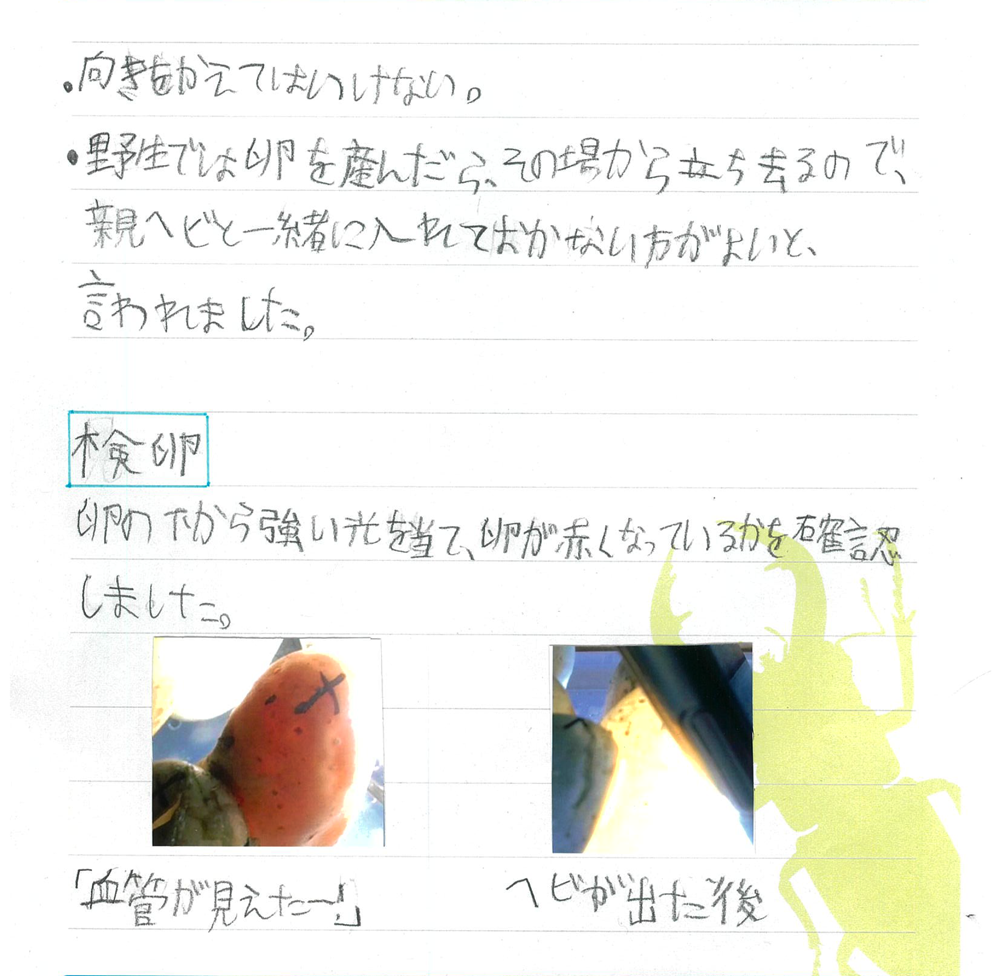 ・向きをかえてはいけない。
・野生では卵を産んだら、その場から立ち去るので、
親ヘビと一緒に入れておかない方がよいと、
言われました。
検卵
卵の下から強い光を当て、卵が赤くなっているかを確認
しました。
「血管が見えたー!」
ヘビが出た後